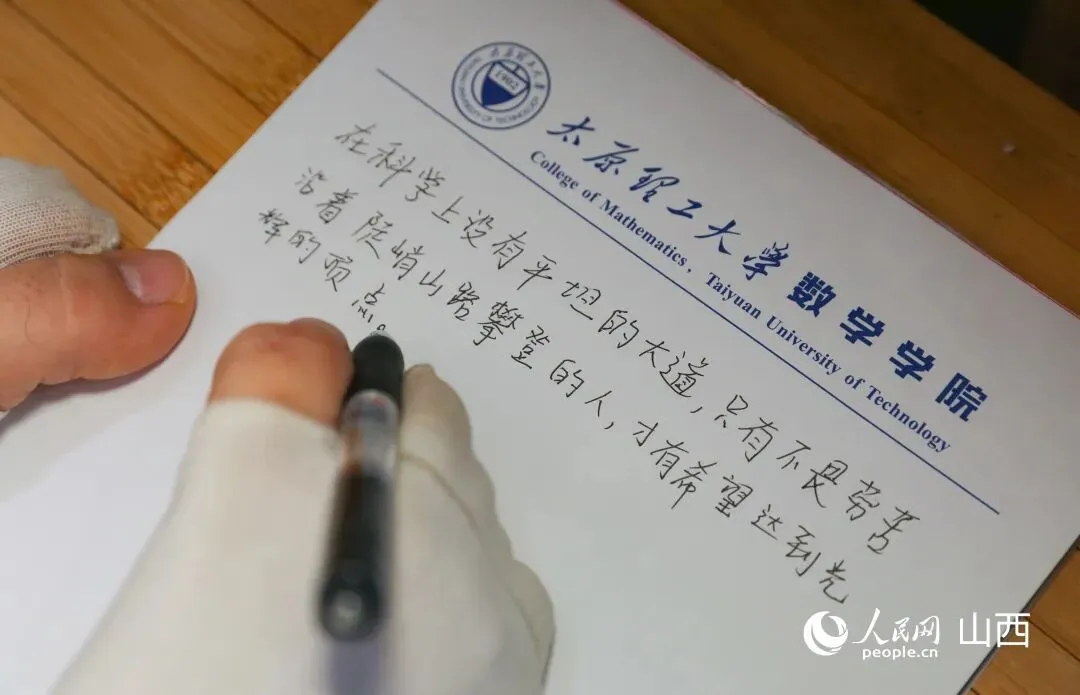 太原理工大学
1902
TAIYUAN UNIVERSITY OF TECHNOLOGY
太原理工大学 数学学院
College of Mathematics, Taiyuan University of Technology
在科学上没有平坦的大道,只有不畏劳苦
沿着陡峭山路攀登的人,才有希望达到光
辉的顶点。
人民网 山西
people.cn